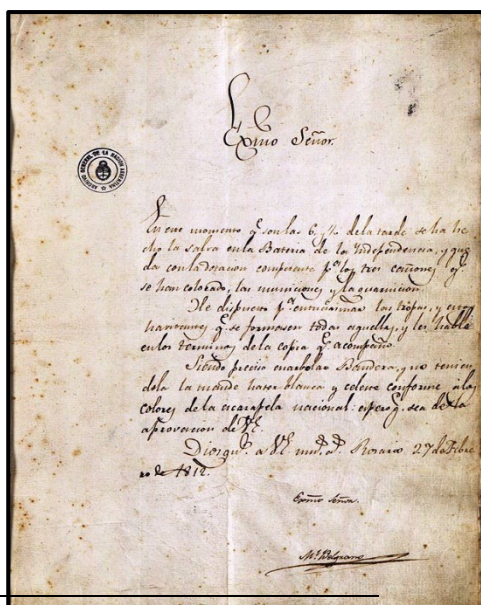 Exmo Señor.
ARCHIVO GENERAL DE LA NACION
ARGENTINA
En este momento q.e son las 6 y ½ de la tarde se ha he
cho la salva en la Bateria de la Independencia, y que
da con la dotacion competente p.a los tres cañones q.e
se han colocado, las municiones y la guarnicion.
He dispuesto p.a entusiasmar las tropas, y estos
havitantes, q.e se formasen todas aquellas, y les hablé
en los terminos de la copia q.e acompaño.
Siendo preciso enarbolar Bandera, y no tenien
dola la mandé hacer blanca y celeste conforme á los
colores de la escarapela nacional: espero q.e sea de la
aprovacion de VE.
Dios gu.e a VE. m.s a.s Rosario 27 de Febre
ro de 1812.
Exmo Señor.
M.l Belgrano